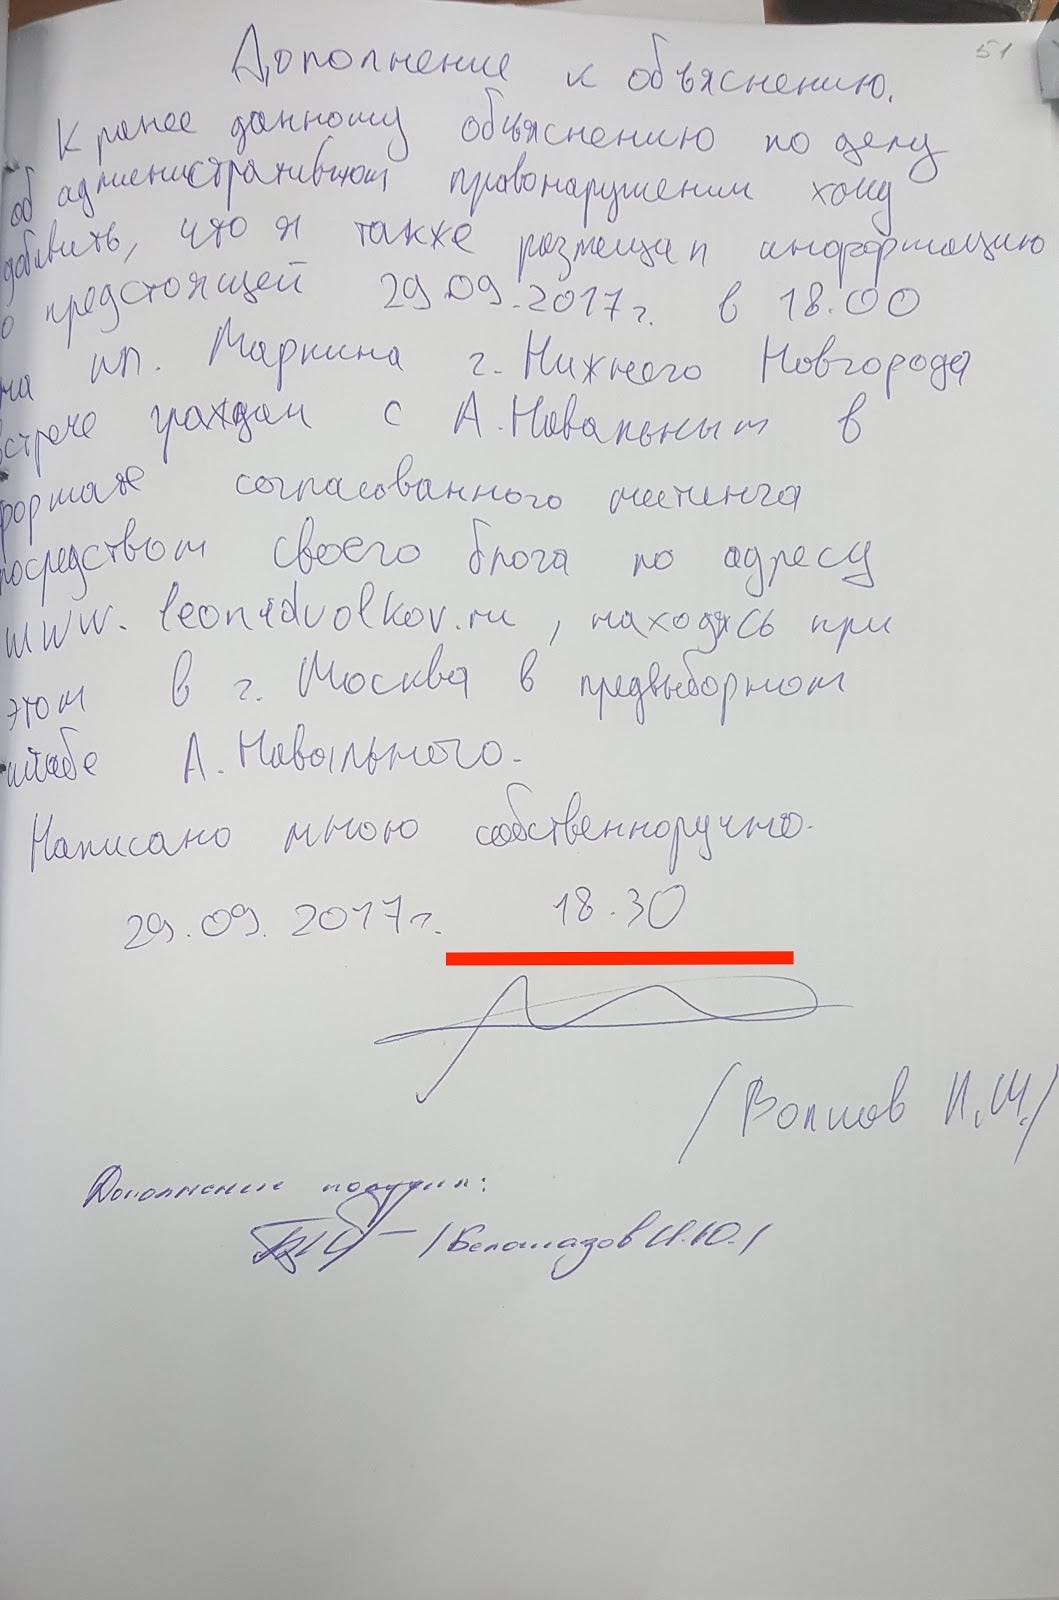 51
Дополнение к объяснению.
К ранее данному объяснению по делу
об административном правонарушении хочу
добавить, что я также размещал информацию
о предстоящей 29.09.2017г. в 18.00
на пл. Маркина г. Нижнего Новгорода
встрече граждан с А. Навальным в
формате согласованного митинга
посредством своего блога по адресу
www.leonidvolkov.ru, находясь при
этом в г. Москва в предвыборном
штабе А. Навального.
Написано мною собственноручно.
29.09.2017г. 18.30
/Волков Л.М./
Дополнение получил:
/Беломазов И.Ю./